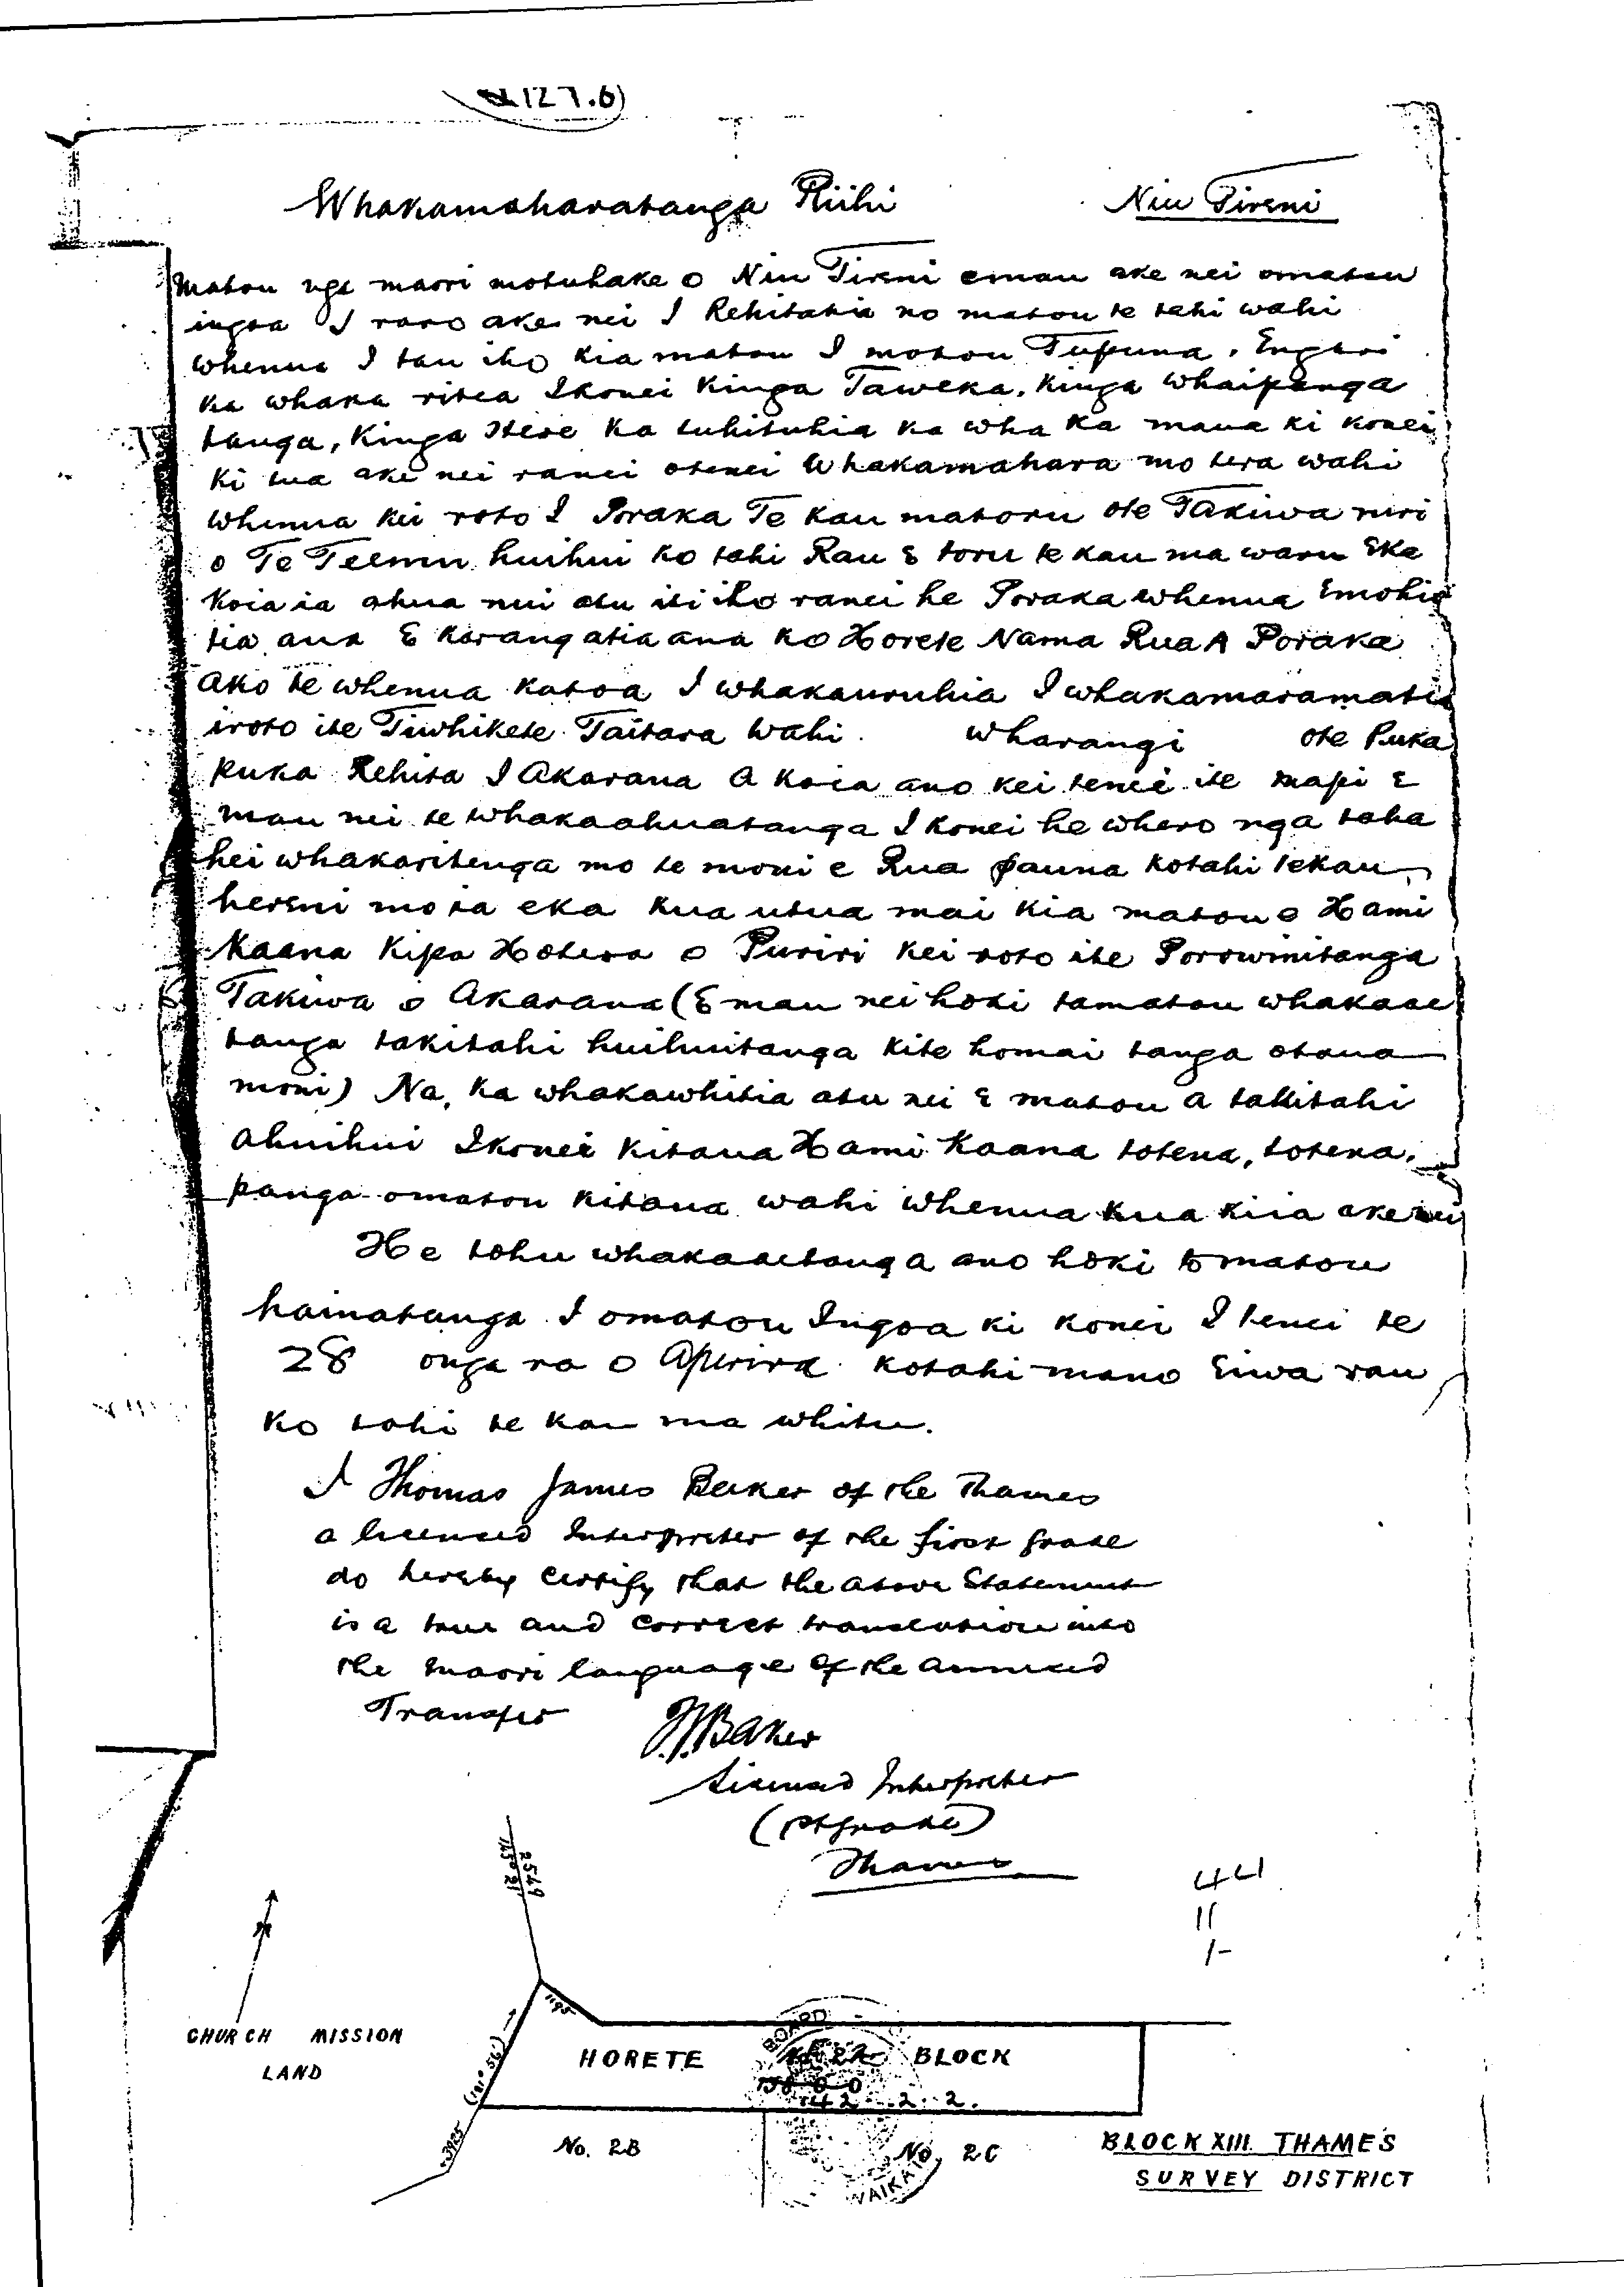 127.6)
Whakamaharatanga Riihi Niu Tireni
Matou nga maori motuhake o Niu Tireni emau ake nei omatou
ingoa I raro ake nei I Rehitatia no matou te tahi wahi
whenua I tau iho kia matou I motou Tupuna, Engari
ka whaka ritea Ikonei Kinga Taweka, Kinga whaipanga
tanga, Kinga Here ka tuhituhia ka wha ka maua ki konei
ki tua ake nei ranei otenei Whakamahara mo tera wahi
whenua kei roto I Poraka Te Kau matoru ote Takiwa ruri
o Te Teemu huihui ko tahi Rau E toru te kau ma waru Eka
Koia ia ahua nui atu iti iho ranei he Poraka whenua Emohio
tia ana E karangatia ana ko Horete Nama Rua A Poraka
Ako te whenua katoa I whakauruhia I whakamaramatia
iroto ite Tiwhikete Taitara Wahi. Wharangi ote Puka
puka Rehita I Akarana A koia ano kei tenei ite mapi E
mau nei te whakaahuatanga I konei he whero nga taha
hei whakaritenga mo te moni e Rua pauna kotahi tekau
hereni mo ia eka kua utua mai kia matou e Hami
Kaana Kipa Hotera o Puriri kei roto ite Porowinitanga
Takiwa o Akarana (E mau nei hoki tamatou whakaae
tanga takitahi huihuitanga kite homai tanga otaua
moni) Na, ka whakawhitia atu nei E matou a takitahi
ahuihui Ikonei kitaua Hami Kaana totena, totena,
panga omatou kitaua wahi whenua kua kiia ake nei
He tohu whakaaetanga ano hoki to matou
hainatanga I omatou Ingoa ki konei I tenei te
28 onga ra o Aperira kotahi mano Eiwa rau
ko tahi te kau ma whitu.
I Thomas James Baker of the Thames
a licensed Interpreter of the first grade
do hereby certify that the above Statement
is a true and correct translation into
the Maori language of the annexed
Transfer
T.J. Baker
Licensed Interpreter
(1st grade)
Thames
44
11
1-
2549
163° 21'
1195
CHURCH MISSION
LAND
(191° 56')
3925
HORETE BLOCK
BOARD
142 . 2 . 2.
No. 2B
No. 2C
WAIKA
BLOCK XIII THAMES
SURVEY DISTRICT